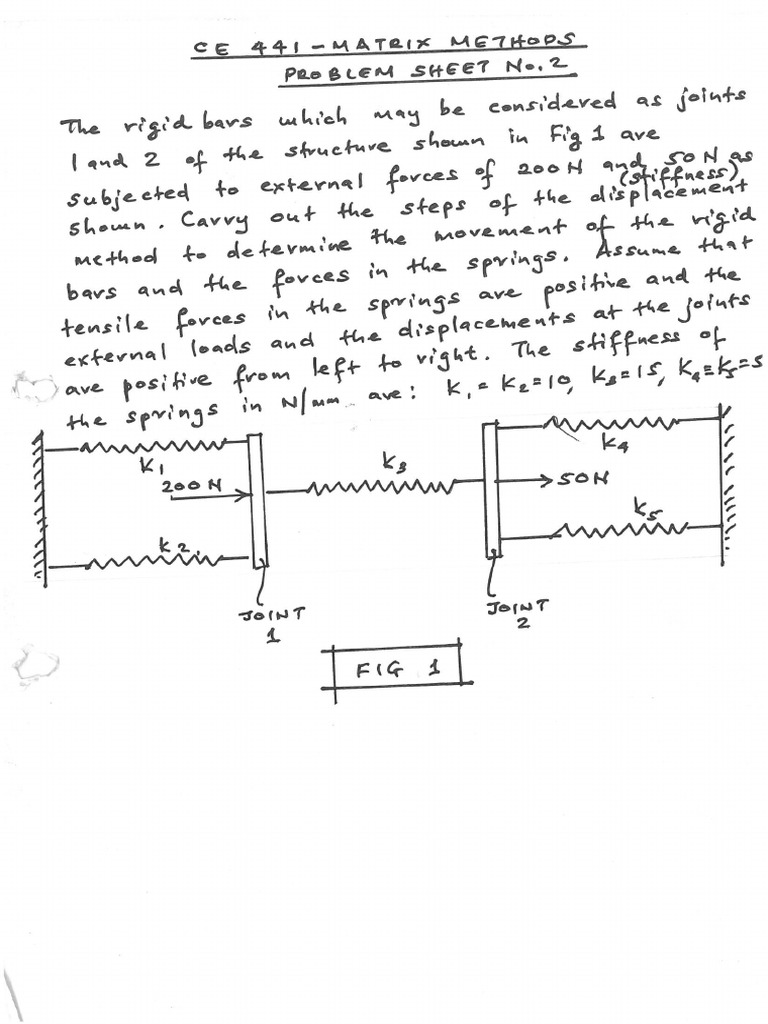 CE 441 - MATRIX METHODS
PROBLEM SHEET No. 2
The rigid bars which may be considered as joints
1 and 2 of the structure shown in Fig 1 are
subjected to external forces of 200N and 50N as
shown. Carry out the steps of the displacement
(stiffness)
method to determine the movement of the rigid
bars and the forces in the springs. Assume that
tensile forces in the springs are positive and the
external loads and the displacements at the joints
are positive from left to right. The stiffness of
the springs in N/mm are: K1 = K2 = 10, K3 = 15, K4 = K5 = 5
K1
200 N
K2.
K3
K4
50N
K5
JOINT
1
JOINT
2
FIG 1